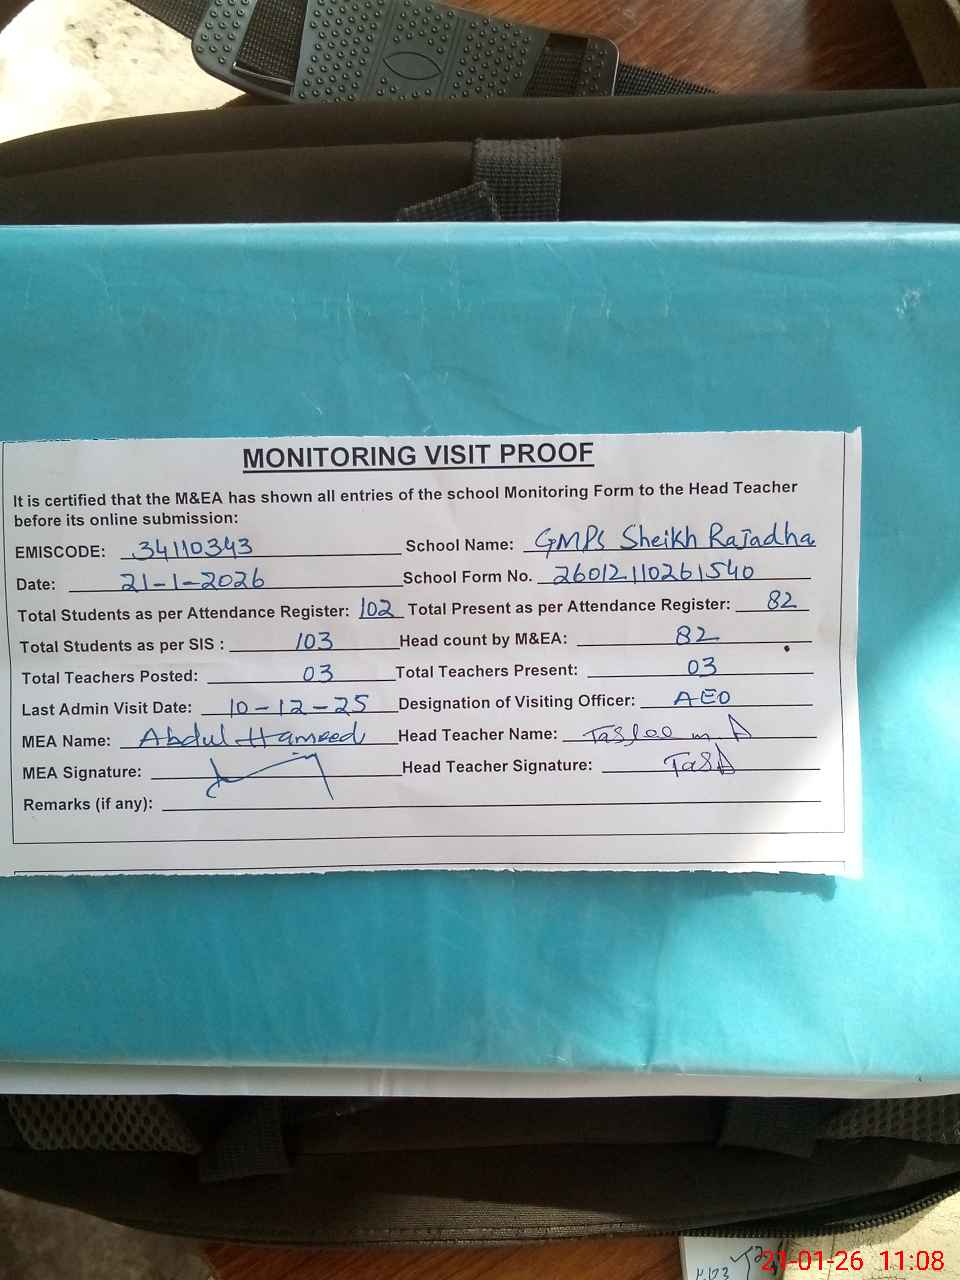 MONITORING VISIT PROOF
It is certified that the M&EA has shown all entries of the school Monitoring Form to the Head Teacher
before its online submission:
EMISCODE: 34110343 School Name: GMPS Sheikh Rajadha
Date: 21-1-2026 School Form No. 26012110261540
Total Students as per Attendance Register: 102 Total Present as per Attendance Register: 82
Total Students as per SIS : 103 Head count by M&EA: 82
Total Teachers Posted: 03 Total Teachers Present: 03
Last Admin Visit Date: 10-12-25 Designation of Visiting Officer: AEO
MEA Name: Abdul Hameed Head Teacher Name:
MEA Signature: Head Teacher Signature:
Remarks (if any):
21-01-26 11:08